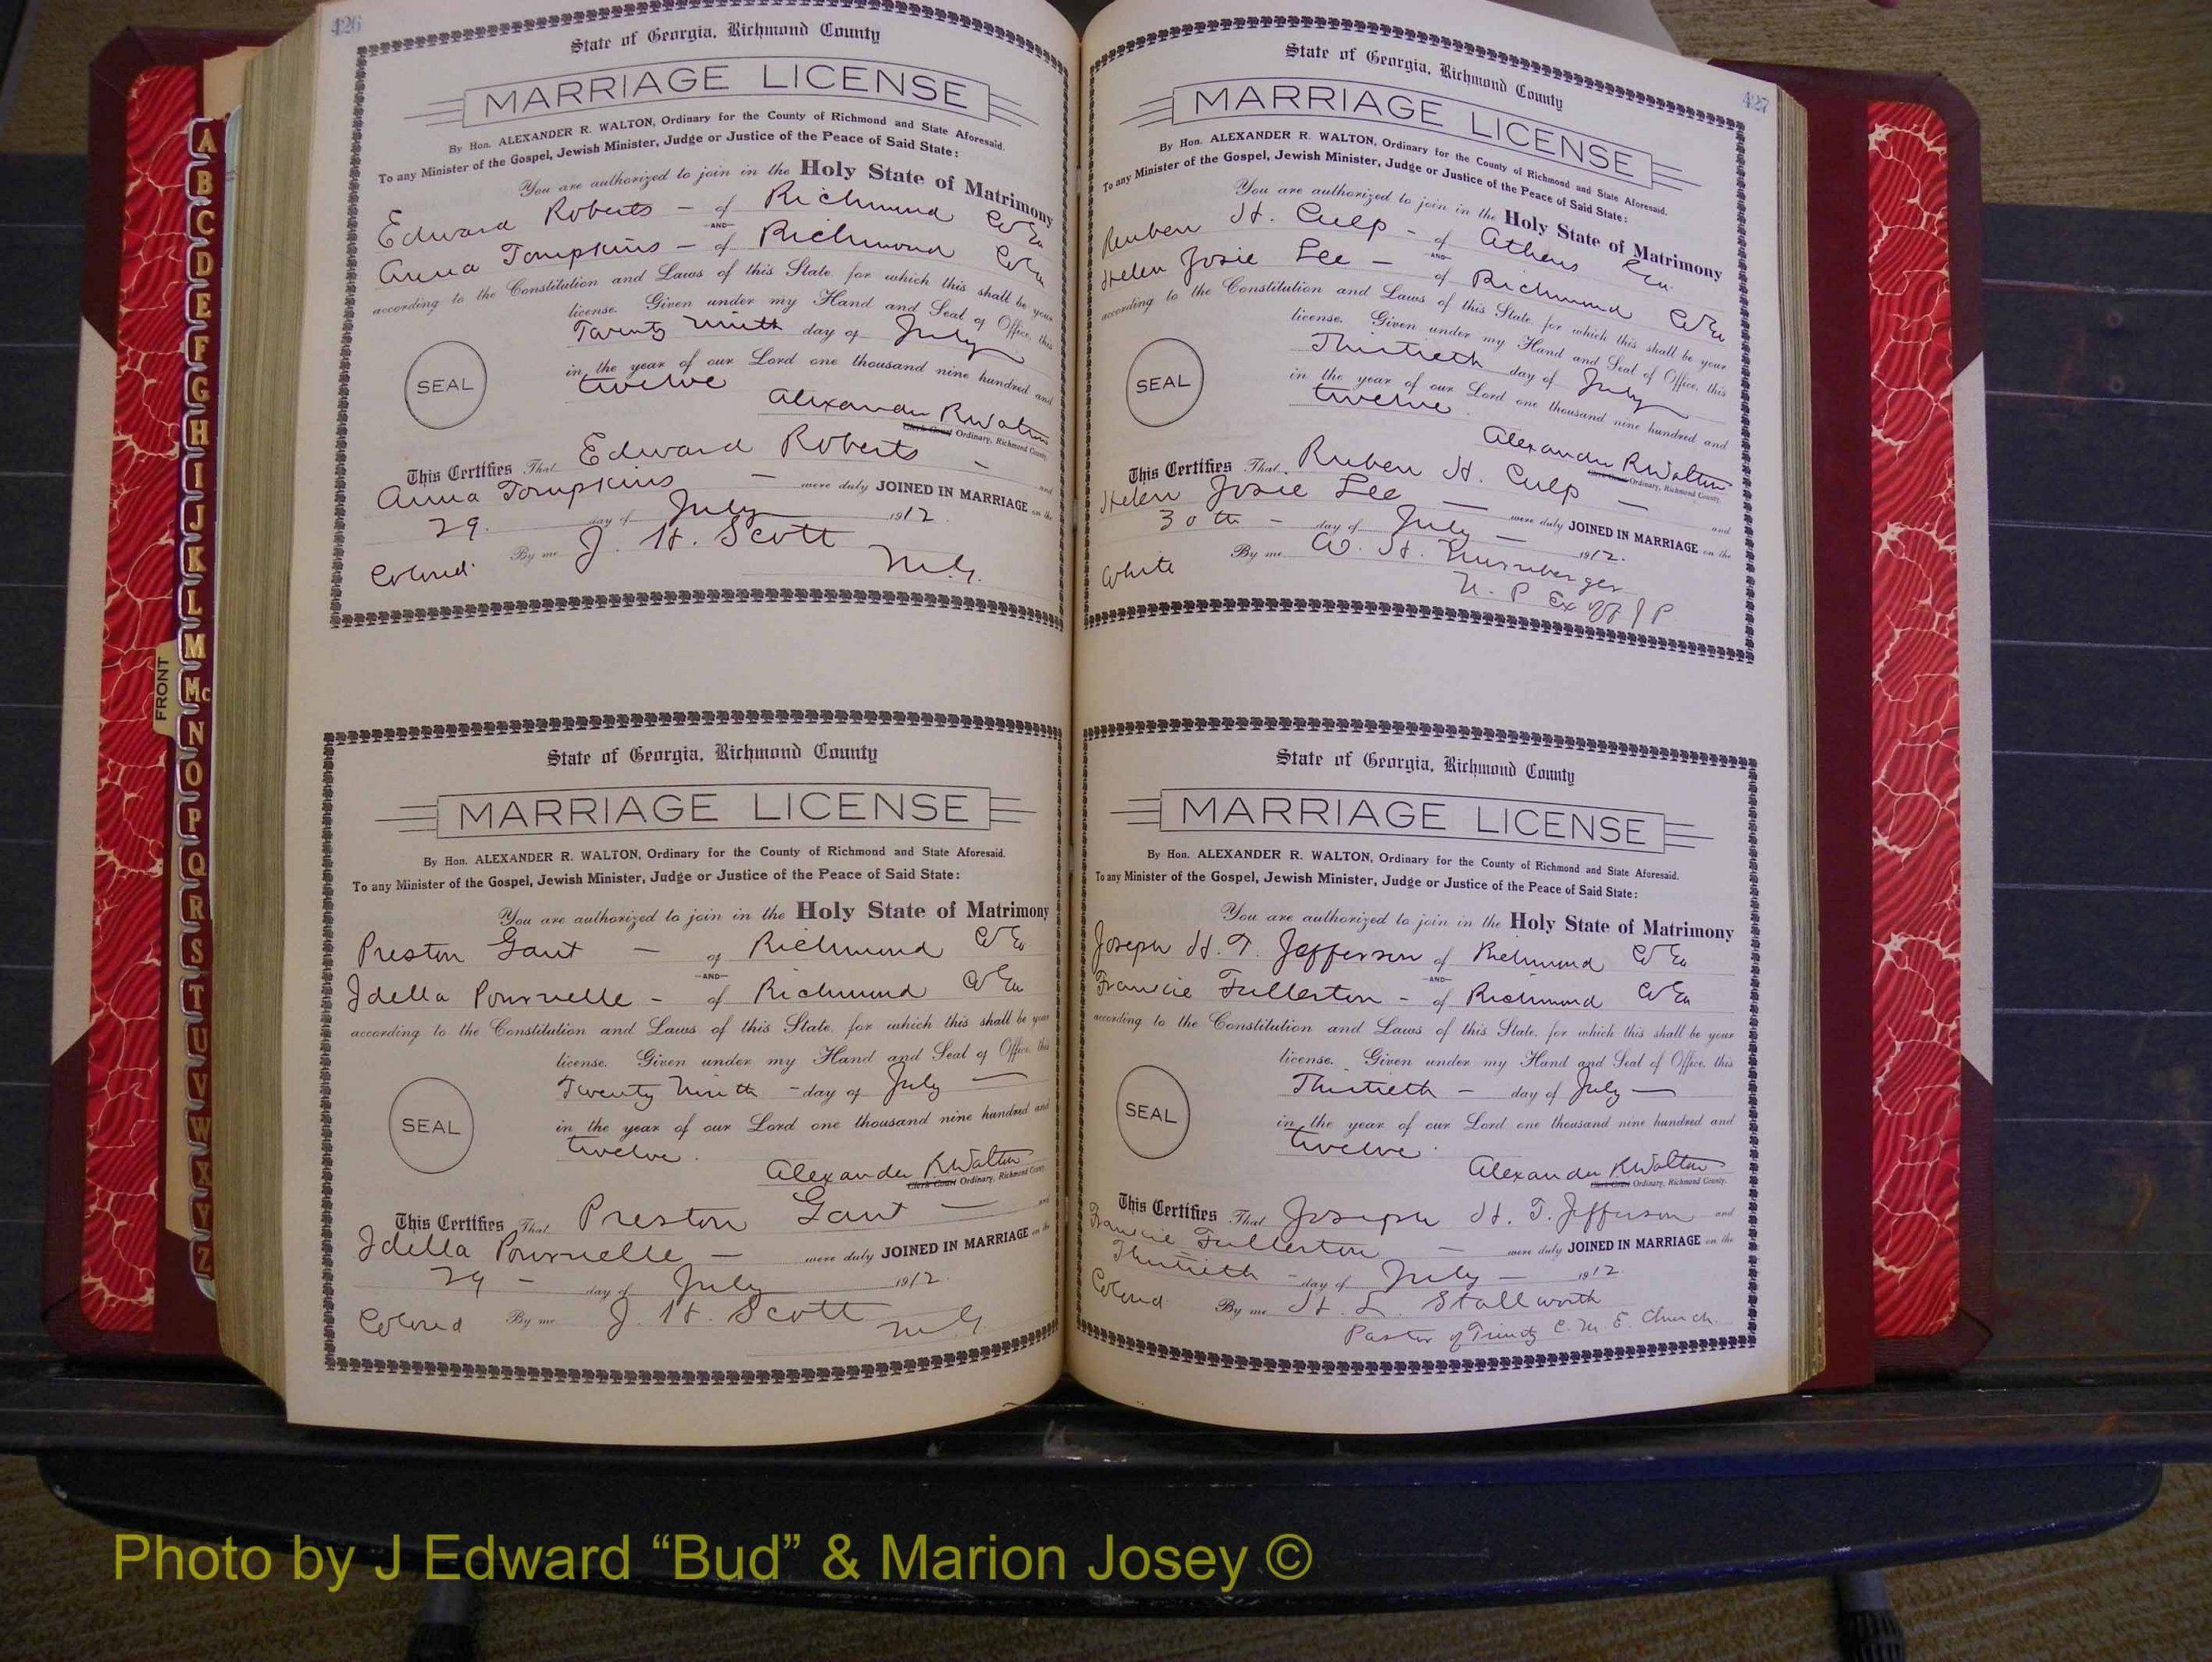 426
State of Georgia, Richmond County
MARRIAGE LICENSE
By Hon. ALEXANDER R. WALTON, Ordinary for the County of Richmond and State Aforesaid.
To any Minister of the Gospel, Jewish Minister, Judge or Justice of the Peace of Said State:
You are authorized to join in the Holy State of Matrimony
Edward Roberts - of Richmond Co Ga
AND
Anna Tompkins - of Richmond Co Ga
according to the Constitution and Laws of this State, for which this shall be your
license. Given under my Hand and Seal of Office, this
Twenty Ninth day of July
in the year of our Lord one thousand nine hundred and
twelve
SEAL
Alexander R Walton
Clerk Court Ordinary, Richmond County
This Certifies That Edward Roberts - and
Anna Tompkins - were duly JOINED IN MARRIAGE on the
29. day of July 1912.
Colored By me J. H. Scott
M.G.
State of Georgia, Richmond County
MARRIAGE LICENSE
By Hon. ALEXANDER R. WALTON, Ordinary for the County of Richmond and State Aforesaid.
To any Minister of the Gospel, Jewish Minister, Judge or Justice of the Peace of Said State:
You are authorized to join in the Holy State of Matrimony
Preston Gant - of Richmond Co Ga
AND
Idella Pournelle - of Richmond Co Ga
according to the Constitution and Laws of this State, for which this shall be your
license. Given under my Hand and Seal of Office, this
Twenty Ninth - day of July -
in the year of our Lord one thousand nine hundred and
twelve.
SEAL
Alexander R Walton
Clerk Court Ordinary, Richmond County
This Certifies That Preston Gant - and
Idella Pournelle - were duly JOINED IN MARRIAGE on the
29 - day of July 1912.
Colored By me J. H. Scott
M.G.
427
State of Georgia, Richmond County
MARRIAGE LICENSE
By Hon. ALEXANDER R. WALTON, Ordinary for the County of Richmond and State Aforesaid.
To any Minister of the Gospel, Jewish Minister, Judge or Justice of the Peace of Said State:
You are authorized to join in the Holy State of Matrimony
Ruben H. Culp - of Athens Ga.
AND
Helen Josie Lee - of Richmond Co Ga
according to the Constitution and Laws of this State, for which this shall be your
license. Given under my Hand and Seal of Office, this
Thirtieth day of July
in the year of our Lord one thousand nine hundred and
twelve.
SEAL
Alexander R Walton
Clerk Court Ordinary, Richmond County
This Certifies That Ruben H. Culp - and
Helen Josie Lee - were duly JOINED IN MARRIAGE on the
30th - day of July - 1912.
White By me W. H. Nurnberger
N. P Ex Off J P
State of Georgia, Richmond County
MARRIAGE LICENSE
By Hon. ALEXANDER R. WALTON, Ordinary for the County of Richmond and State Aforesaid.
To any Minister of the Gospel, Jewish Minister, Judge or Justice of the Peace of Said State:
You are authorized to join in the Holy State of Matrimony
Joseph H. T. Jefferson of Richmond Co Ga
AND
Francie Fullerton - of Richmond Co Ga
according to the Constitution and Laws of this State, for which this shall be your
license. Given under my Hand and Seal of Office, this
Thirtieth - day of July -
in the year of our Lord one thousand nine hundred and
twelve.
SEAL
Alexander R Walton
Clerk Court Ordinary, Richmond County.
This Certifies That Joseph H. T. Jefferson and
Francie Fullerton - were duly JOINED IN MARRIAGE on the
Thirtieth - day of July - 1912.
Colored By me H. L. Stallworth
Pastor of Trinity C. M. E. Church.
FRONT
A
B
C
D
E
F
G
H
I
J
K
L
M
Mc
N
O
P
Q
R
S
T
U
V
W
X
Y
Z
Photo by J Edward “Bud” & Marion Josey ©